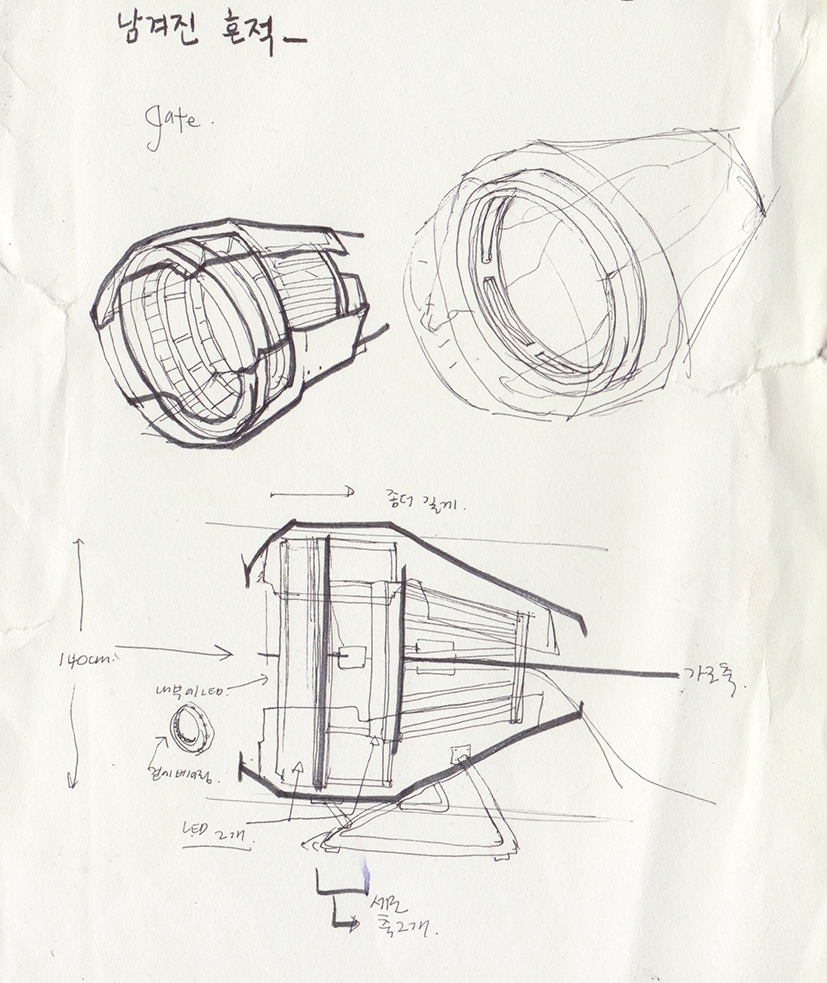 남겨진 흔적_
gate.
좀더 길게.
140cm.
가로축.
내부에 LED.
LED 2개.
세로
축 2개.